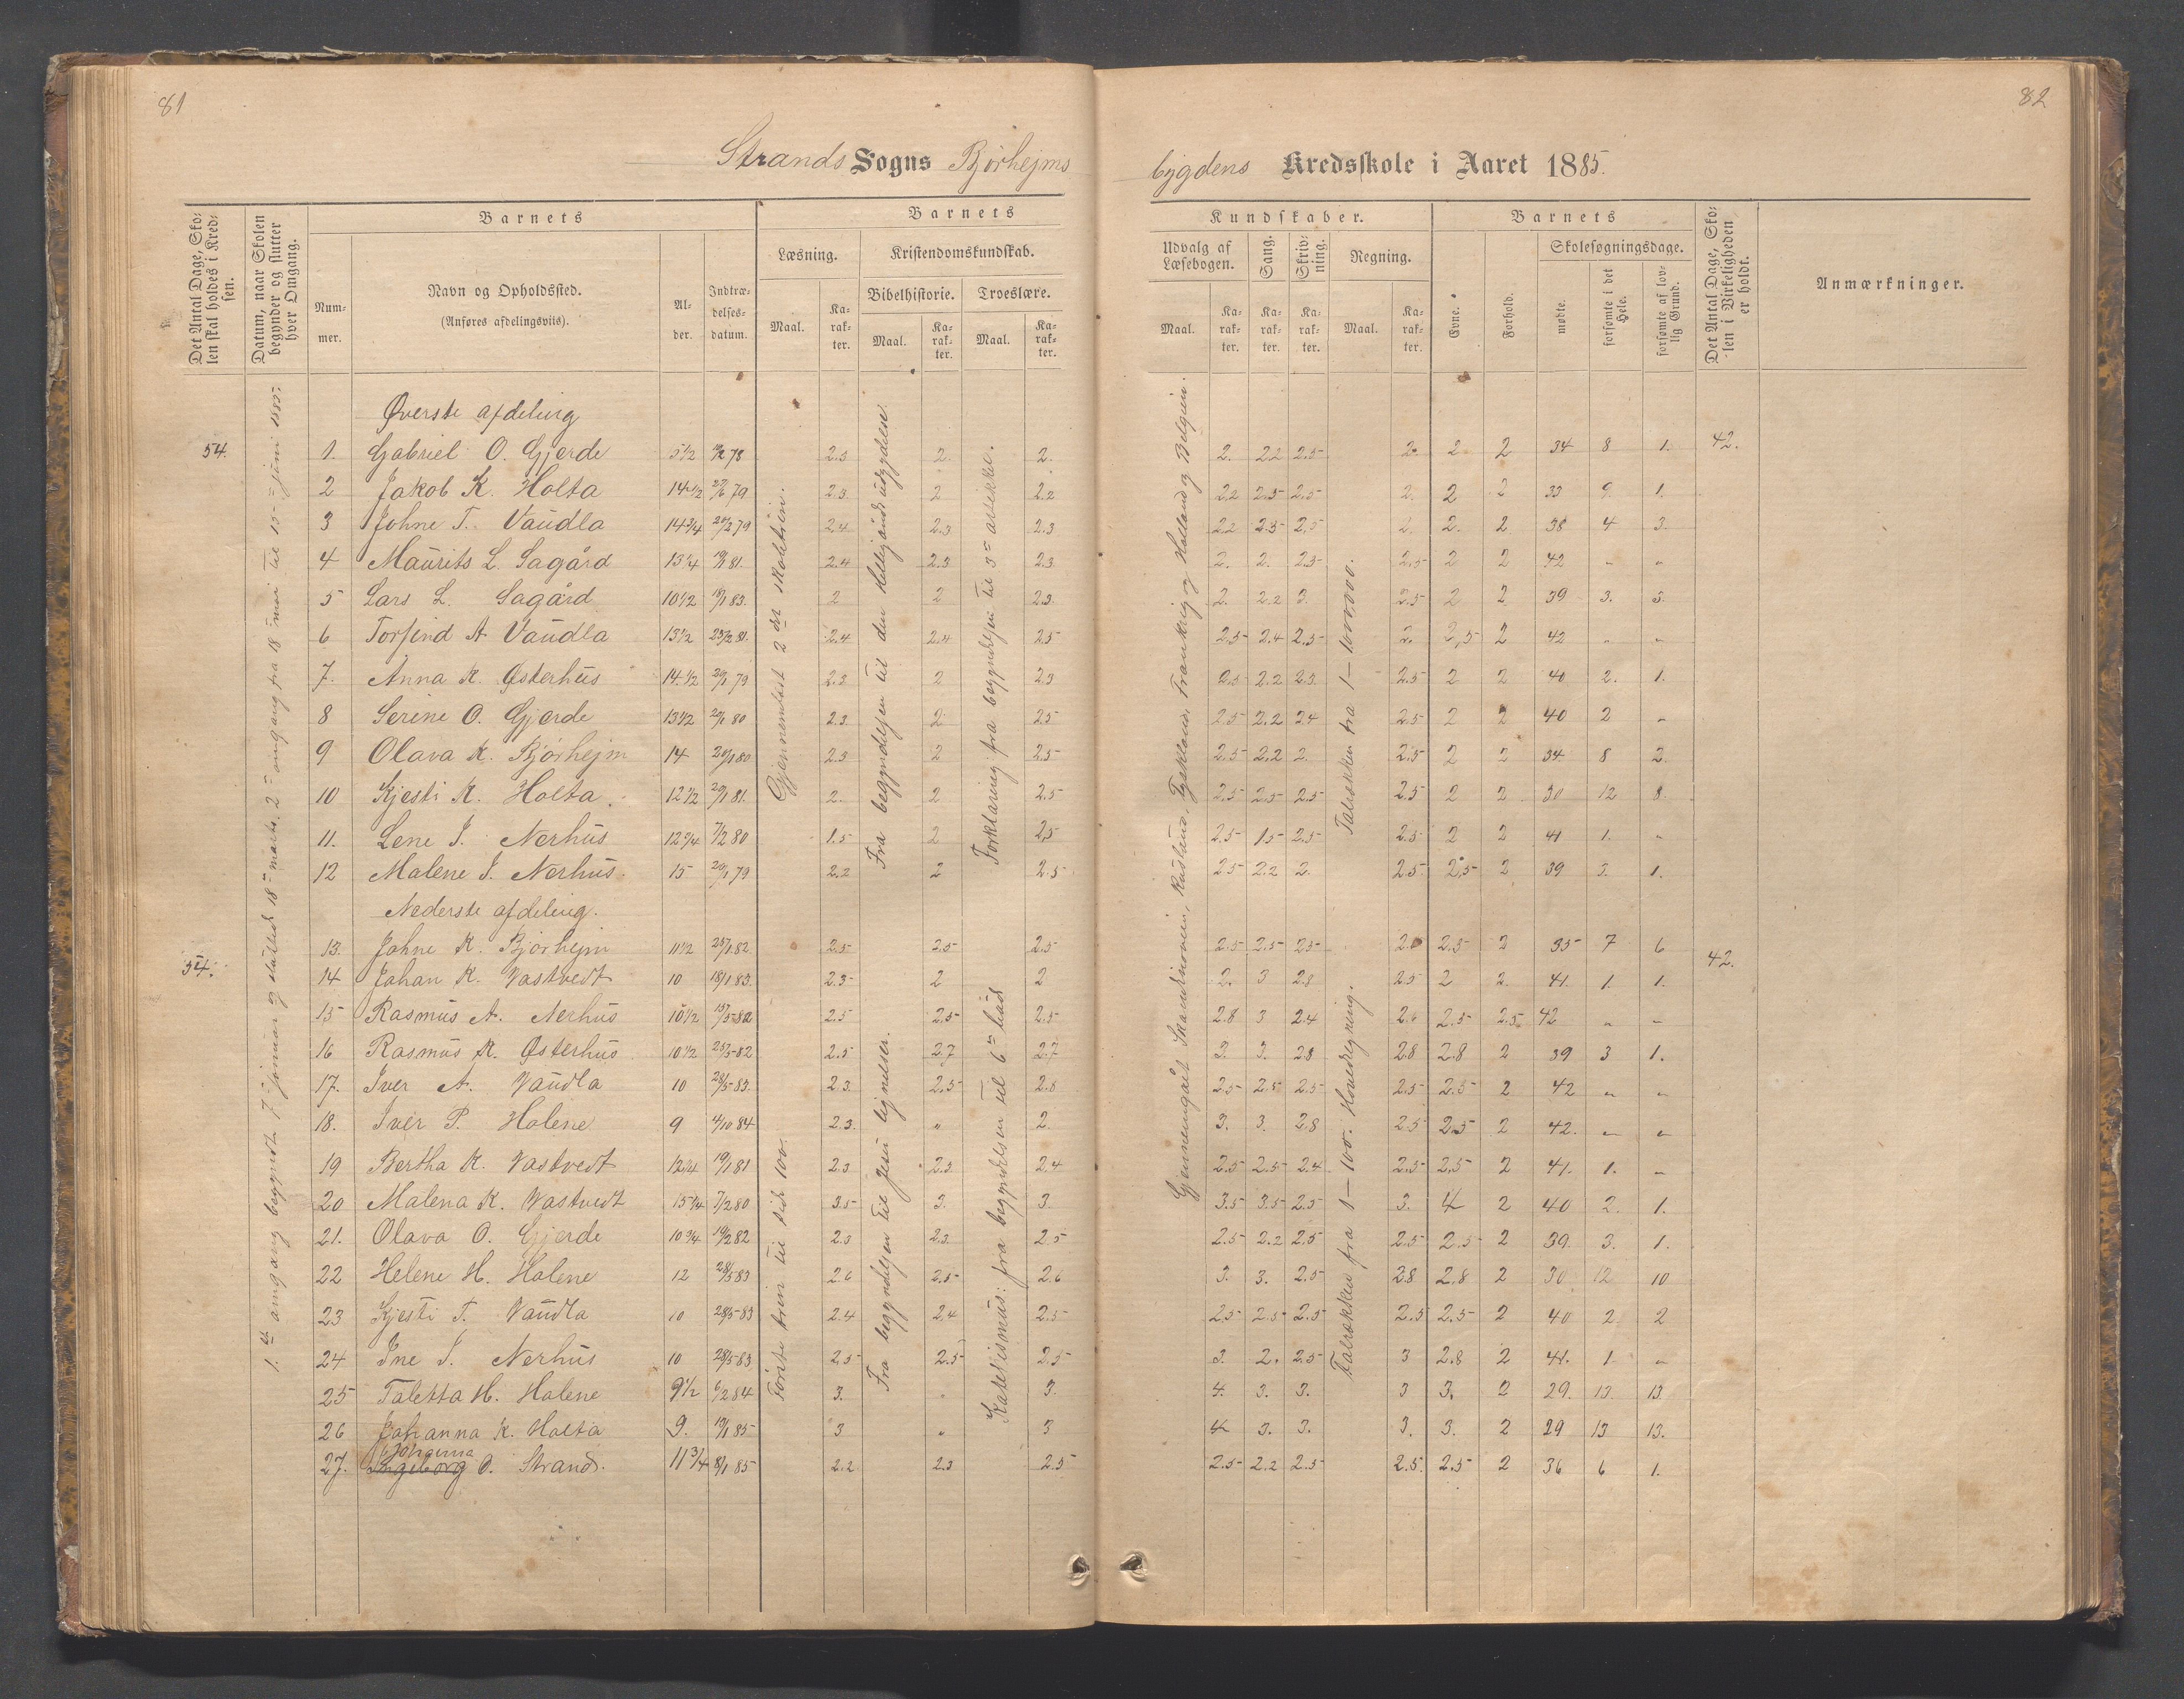 81
82
Strands Sogns Bjørhejms
bygdens Kredsskole i Aaret 1885.
Det Antal Dage, Skolen skal holdes i Kredsen.
Datum, naar Skolen begynder og slutter hver Omgang.
Barnets
Nummer.
Navn og Opholdssted.
(Anføres afdelingsviis).
Alder.
Indtrædelsesdatum.
Barnets
Læsning.
Kristendomskundskab.
Bibelhistorie.
Troeslære.
Maal.
Karakter.
Maal.
Karakter.
Maal.
Karakter.
Kundskaber.
Udvalg af Læsebogen.
Sang.
Skrivning.
Regning.
Maal.
Karakter.
Karakter.
Karakter.
Maal.
Karakter.
Barnets
Evne.
Forhold.
Skolesøgningsdage.
mødte.
forsømte i det Hele.
forsømte af lovlig Grund.
Det Antal Dage, Skolen i Virkeligheden er holdt.
Anmærkninger.
Øverste afdeling
54. 1. Gabriel O. Gjerde 2.3 2. 2. 2. 2.2 2.5 2. 2 2 34 8 1. 42.
2 Jakob K. Holta 14 1/2 2.3. 2 2.2 2.2 2.5 2.5 2. 2 2 33 9. 1.
3 Johne T. Vaudla 14 3/4 2.4 2.3 2.3 2.2 2.5 2,5 2. 2. 2 38 4 3.
4 Maurits L. Sagård 13 1/4 2.4 2.3 2.3 2. 2. 2.5 2.5 2 2 42 " "
5 Lars L. Sagård 10 1/2 18/1 83. 2 2 2.3. 2. 2.2 3. 2.5 2 2 39 3. 3.
6 Torfind A Vaudla 13 1/2 2.4 2.4 2.5 2.5 2.4 2.5 2. 2,5 2 42 " "
7. Anna K. Østerhus 14 1/2 20/1 79 2.3 2 2.3 2.5 2.2 2.3. 2.5 2 2 40 2. 1.
8 Serine O. Gjerde 13 1/2 2.3. 2 2.5 2.5 2.2 2.4 2.5 2 2 40 2 "
9 Olava K. Bjørhejm 14 20/1 80 2.3 2 2.5 2.5 2.2 2. 2.5 2 2 34 8 2.
10 Kjesti K. Holta 12 1/2 2. 2 2.5 2.5 2.5 2.5 2.5 2 2 30 12 8.
11. Lene J. Nerhus 12 3/4 7/2 80 1.5 2 2,5 2.5 1.5 2.5 2.5 2 2 41 1. "
12 Malene J. Nerhus. 15 20/1 79 2.2 2 2.5 2.5 2.2 2. 2.5 2,5 2 39 3. 1.
Nederste afdeling.
54. 13. Johne K. Bjørhejm 11 1/2 25/1 82 2.5 2.5 2.5 2.5 2.5 2.5 2.5 2 35 7 6 42.
14 Johan K. Vastvedt 10 18/1 83. 2.3 2 2 2. 3 2.8 2.5 2 2. 41. 1. 1.
15 Rasmus A. Nerhus 10 1/2 2.5 2.5 2.5 2.8 3 2.4 2.5 2.5 42 " "
16 Rasmus K. Østerhus 10 1/2 25/5 82 2.5 2.7 2.7 3. 3. 2.8 2.8 2.8 2 39 3 1.
17. Iver A. Vaudla 10 28/5 83. 2.3. 2.5 2.8 2.5 2.5 2.5 2.5 2.5 2 42 " "
18. Iver P. Holene 9 4/10 84 2.3. " 2. 3. 3. 2.8 2.5 2.5 2 42. " "
19 Bertha K. Vastvedt 12 3/4 19/1 81 2.3 2.3 2.4 2.5 2.5 2.4 2.5 2,5 2 41. 1. "
20 Malena K. Vastvedt 15 1/4 7/2 80 3.5 3. 3. 3.5 3.5 2.5 3. 4 2 40 2. 1.
21. Olava O. Gjerde 10 3/4 2.3 2.3. 2.5 2.5 2.2 2,5 2.5 2.5 2 39. 3. 1.
22 Helene H. Holene 12 28/5 83 2.6 2.5 2.6 3. 3. 2.5 2.8 2.8 2 30 12 10
23 Kjesti T. Vaudla 10 28/5 83 2.4 2.4 2.5 2.5 2.5 2.5 2.5 2.5 2 40 2 2
24 Ine J. Nerhus 10 28/5 83 2.5 2.5 2.5 3. 2. 2.5 3 2.8 2 41. 1 "
25 Taletta H. Holene 9 1/2 6/2 84 3. 3. 4. 3. 3. 3 3. 2 29. 13. 13.
26 Johanna K. Holta 9. 3 " 3 4 3. 3. 3. 3. 2 29 13 13.
27. Ingeborg Johanna O. Strand. 11 3/4 8/1 85 2.2 2.3 2.5 2.5 2.2 2.5 2.5. 2.5 2 36 6 1.
Gjennemlæst 2 det skoltrin.
Første trin til sid 100.
Fra begyndelsen til den Helligånds udgydelse.
Fra begyndelsen til Jesu lignelser.
Forklaring fra begyndelsen til 3 artikkel.
Katekismus: fra begyndelsen til 6
Gjennemgået Skandinavien, Rusland, Tyskland, Frankrig og Holland og Belgien.
Talrækken fra 1 — 1000,000.
Talrækken fra 1 — 100. Hovedregning.